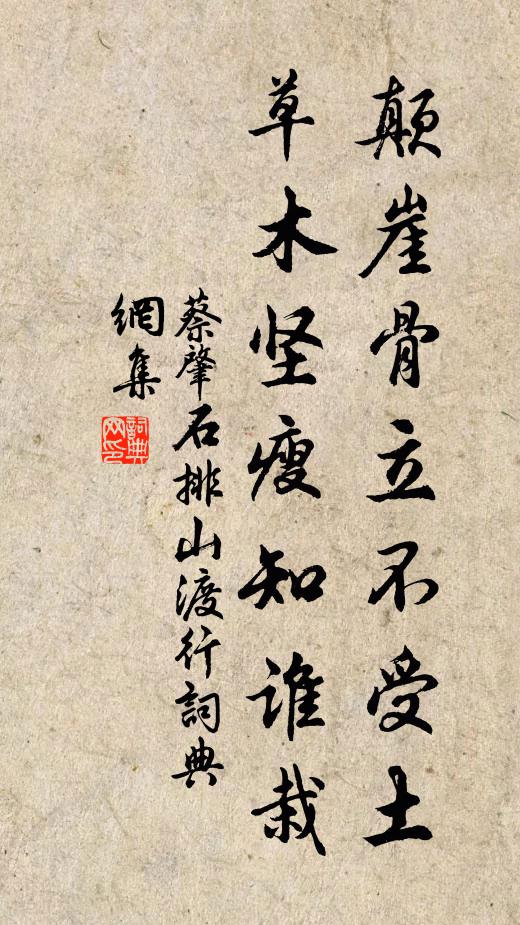 颠崖骨立不受土
草木坚瘦知谁栽
蔡肇石排山渡行詞典
網集
詞典
网印